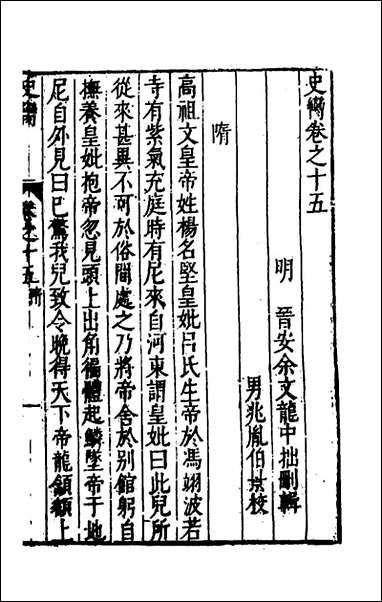 史臠卷之十五
明 晉安余文龍中拙刪輯
男兆胤伯京校
隋
高祖文皇帝姓楊名堅皇妣呂氏生帝於馮翊波若
寺有紫氣充庭時有尼來自河東謂皇妣曰此兒所
從來甚異不可於俗間處之乃將帝舍於別館躬自
撫養皇妣抱帝忽見頭上出角徧體起鱗墜帝于地
尼自外見曰已驚我兒致令晚得天下帝龍頷額上
史臠
卷之十五
隋
一